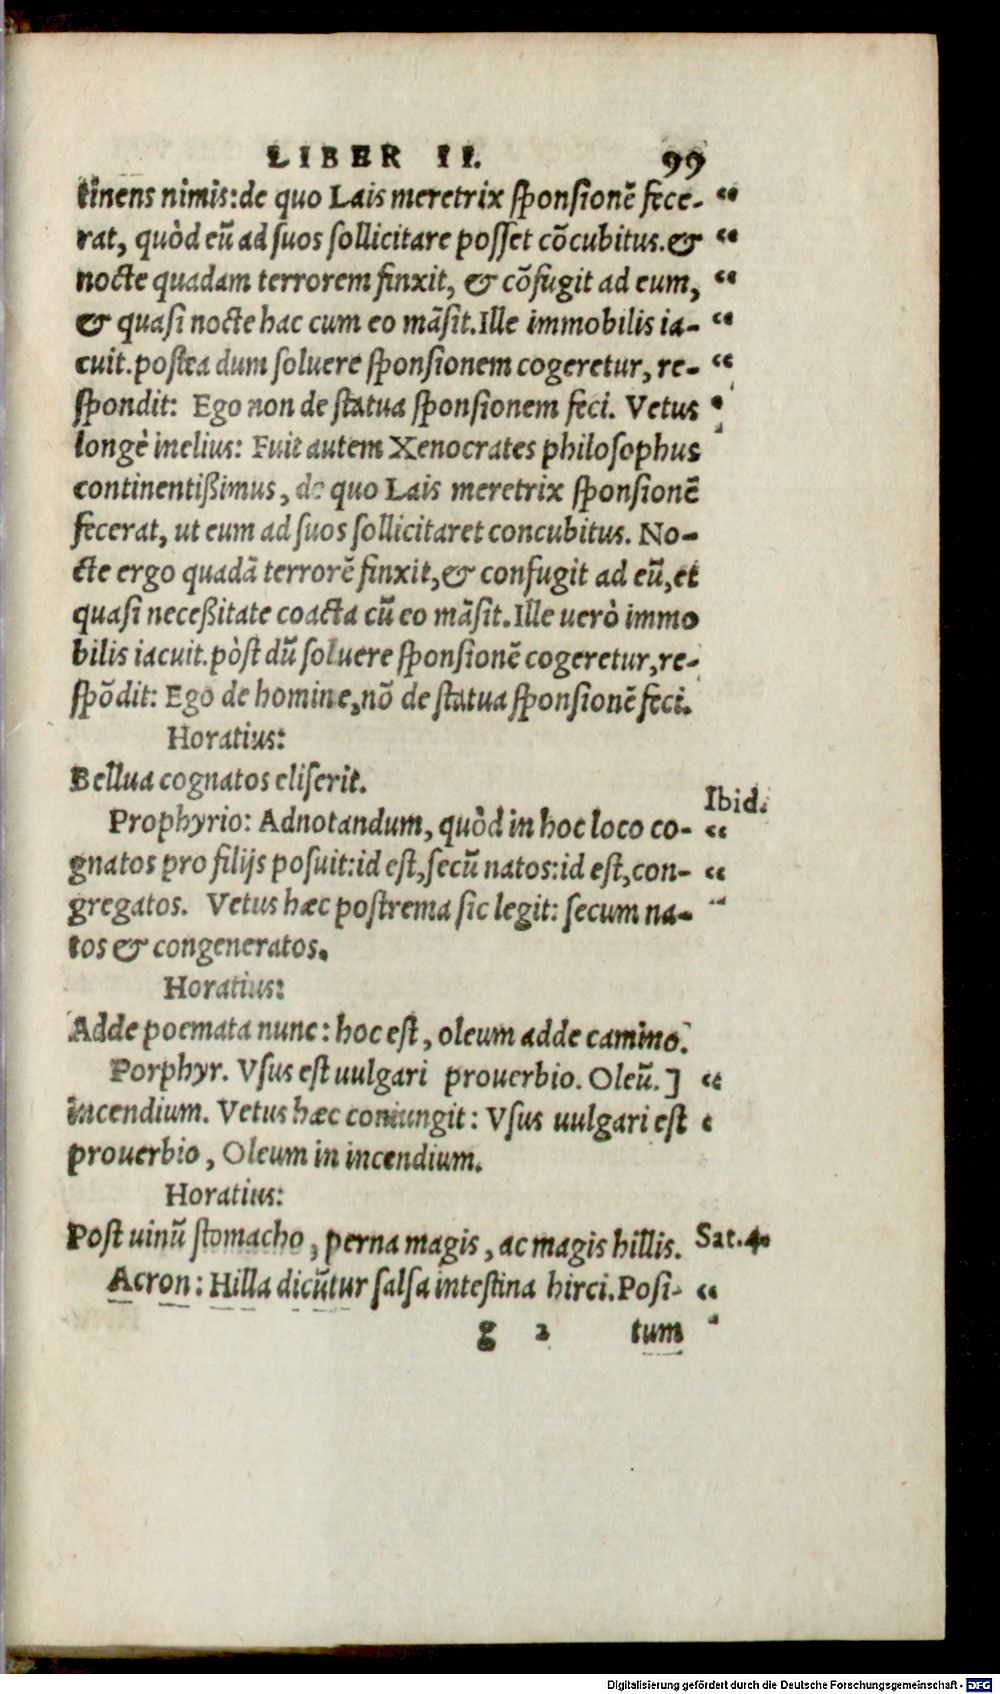 LIBER II. 99
tinens nimis:de quo Lais meretrix sponsionē fece- “
rat, quòd eū ad suos sollicitare posset cōcubitus.& “
nocte quadam terrorem finxit, & cōfugit ad eum, “
& quasi nocte hac cum eo māsit.Ille immobilis ia- “
cuit.postea dum soluere sponsionem cogeretur, re- “
spondit: Ego non de statua sponsionem feci. Vetus
longè melius: Fuit autem Xenocrates philosophus
continentißimus, de quo Lais meretrix sponsionē
fecerat, ut eum ad suos sollicitaret concubitus. No-
cte ergo quadā terrorē finxit,& confugit ad eū,et
quasi neceßitate coacta cū eo māsit.Ille uerò immo
bilis iacuit.pòst dū soluere sponsionē cogeretur,re-
spōdit: Ego de homine,nō de statua sponsionē feci.
Horatius:
Bellua cognatos eliserit.
Ibid.
Prophyrio: Adnotandum, quòd in hoc loco co- “
gnatos pro filijs posuit:id est,secū natos:id est,con- “
gregatos. Vetus hæc postrema sic legit: secum na- “
tos & congeneratos.
Horatius:
Adde poemata nunc: hoc est, oleum adde camino.
Porphyr. Vsus est uulgari prouerbio. Oleū.] “
incendium. Vetus hæc coniungit: Vsus uulgari est
prouerbio, Oleum in incendium.
Horatius:
Post uinū stomacho, perna magis, ac magis hillis. Sat.4.
Acron: Hilla dicūtur salsa intestina hirci.Posi- “
g 2 tum
Digitalisierung gefördert durch die Deutsche Forschungsgemeinschaft - DFG